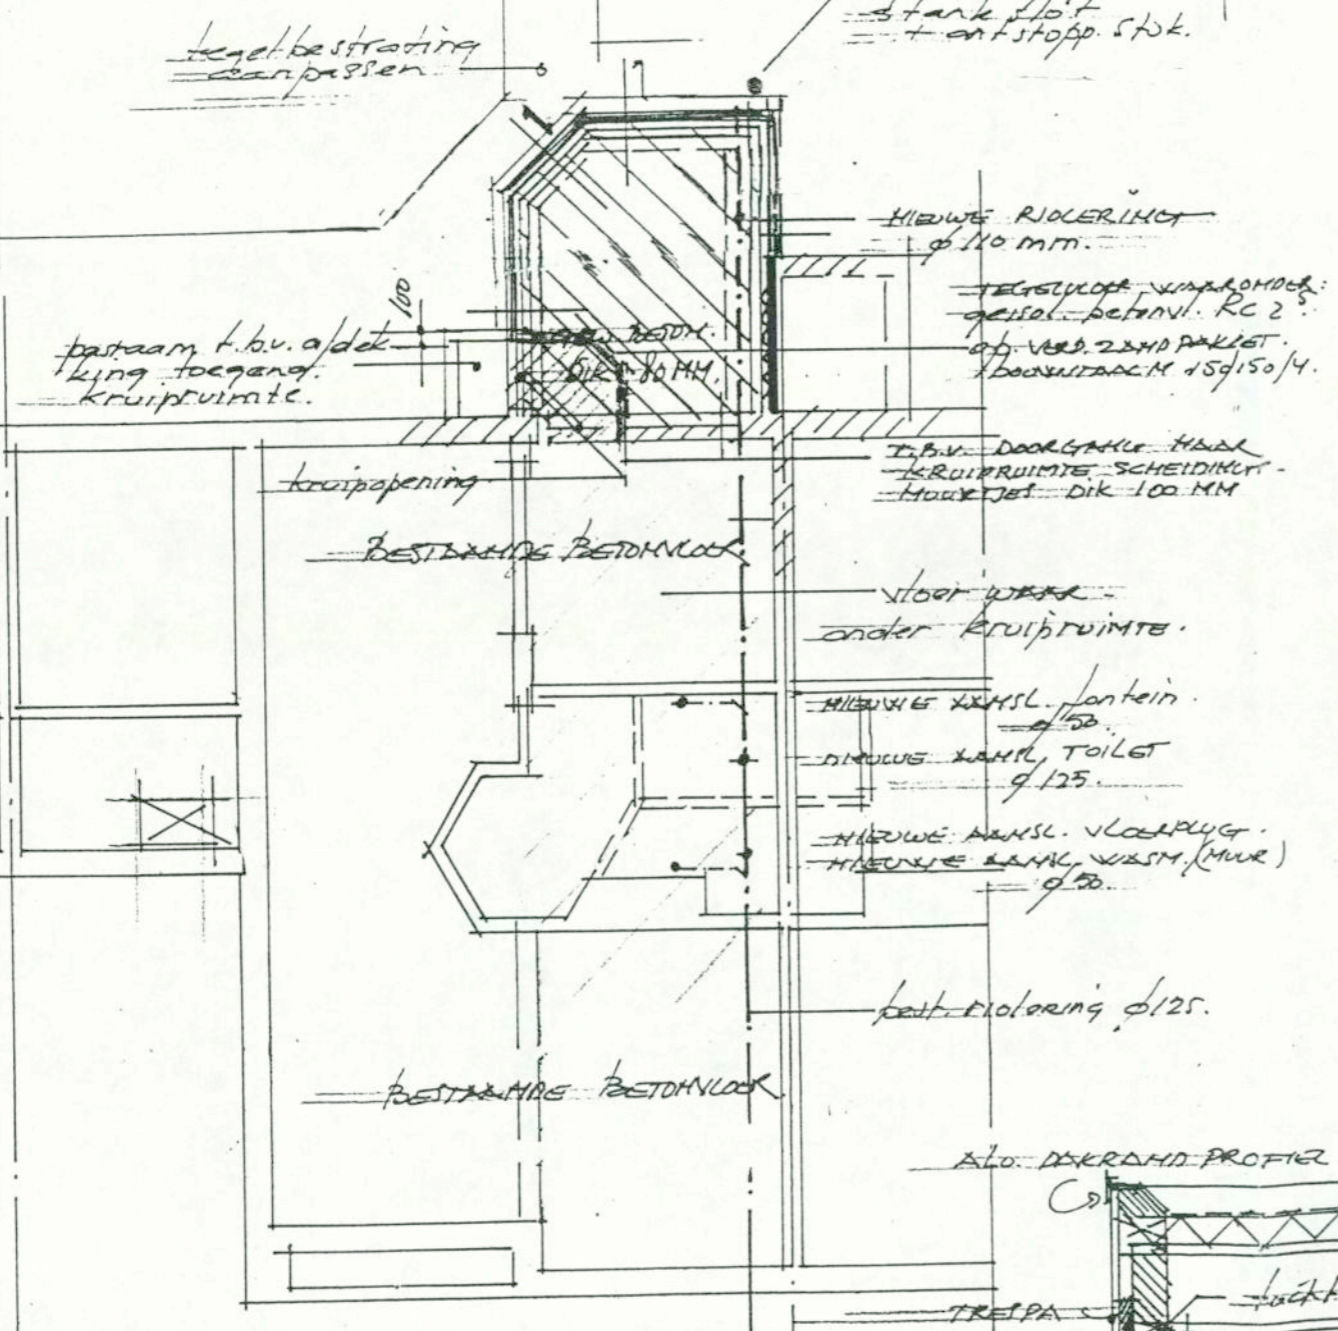 stank slot
+ ontstopp. stuk.
tegelbestrating
aanpassen
NIEUWE RIOLERING
ϕ 110 mm.
100
TEGELVLOER WAARONDER:
geisol. betonvl. RC 2⁵
o/b. VERD. ZANDPAKKET.
BETON.
DIK 80 MM
pasraam t.b.v. a/dek
king toegang.
kruipruimte.
T.B.V. DOORGANG NAAR
KRUIPRUIMTE SCHEIDINGS-
MUURTJES DIK 100 MM
kruipopening
BESTAANDE BETONVLOER
vloer WAAR-
onder kruipruimte.
NIEUWE AANSL. fontein.
ϕ 50.
NIEUWE AANSL. TOILET
ϕ 125.
NIEUWE AANSL. VLOERPLUG.
NIEUWE AANSL. WASM. (MUUR)
ϕ 50.
best. riolering ϕ 125.
BESTAANDE BETONVLOER
ALU. DAKRAND PROFIEL
TRESPA